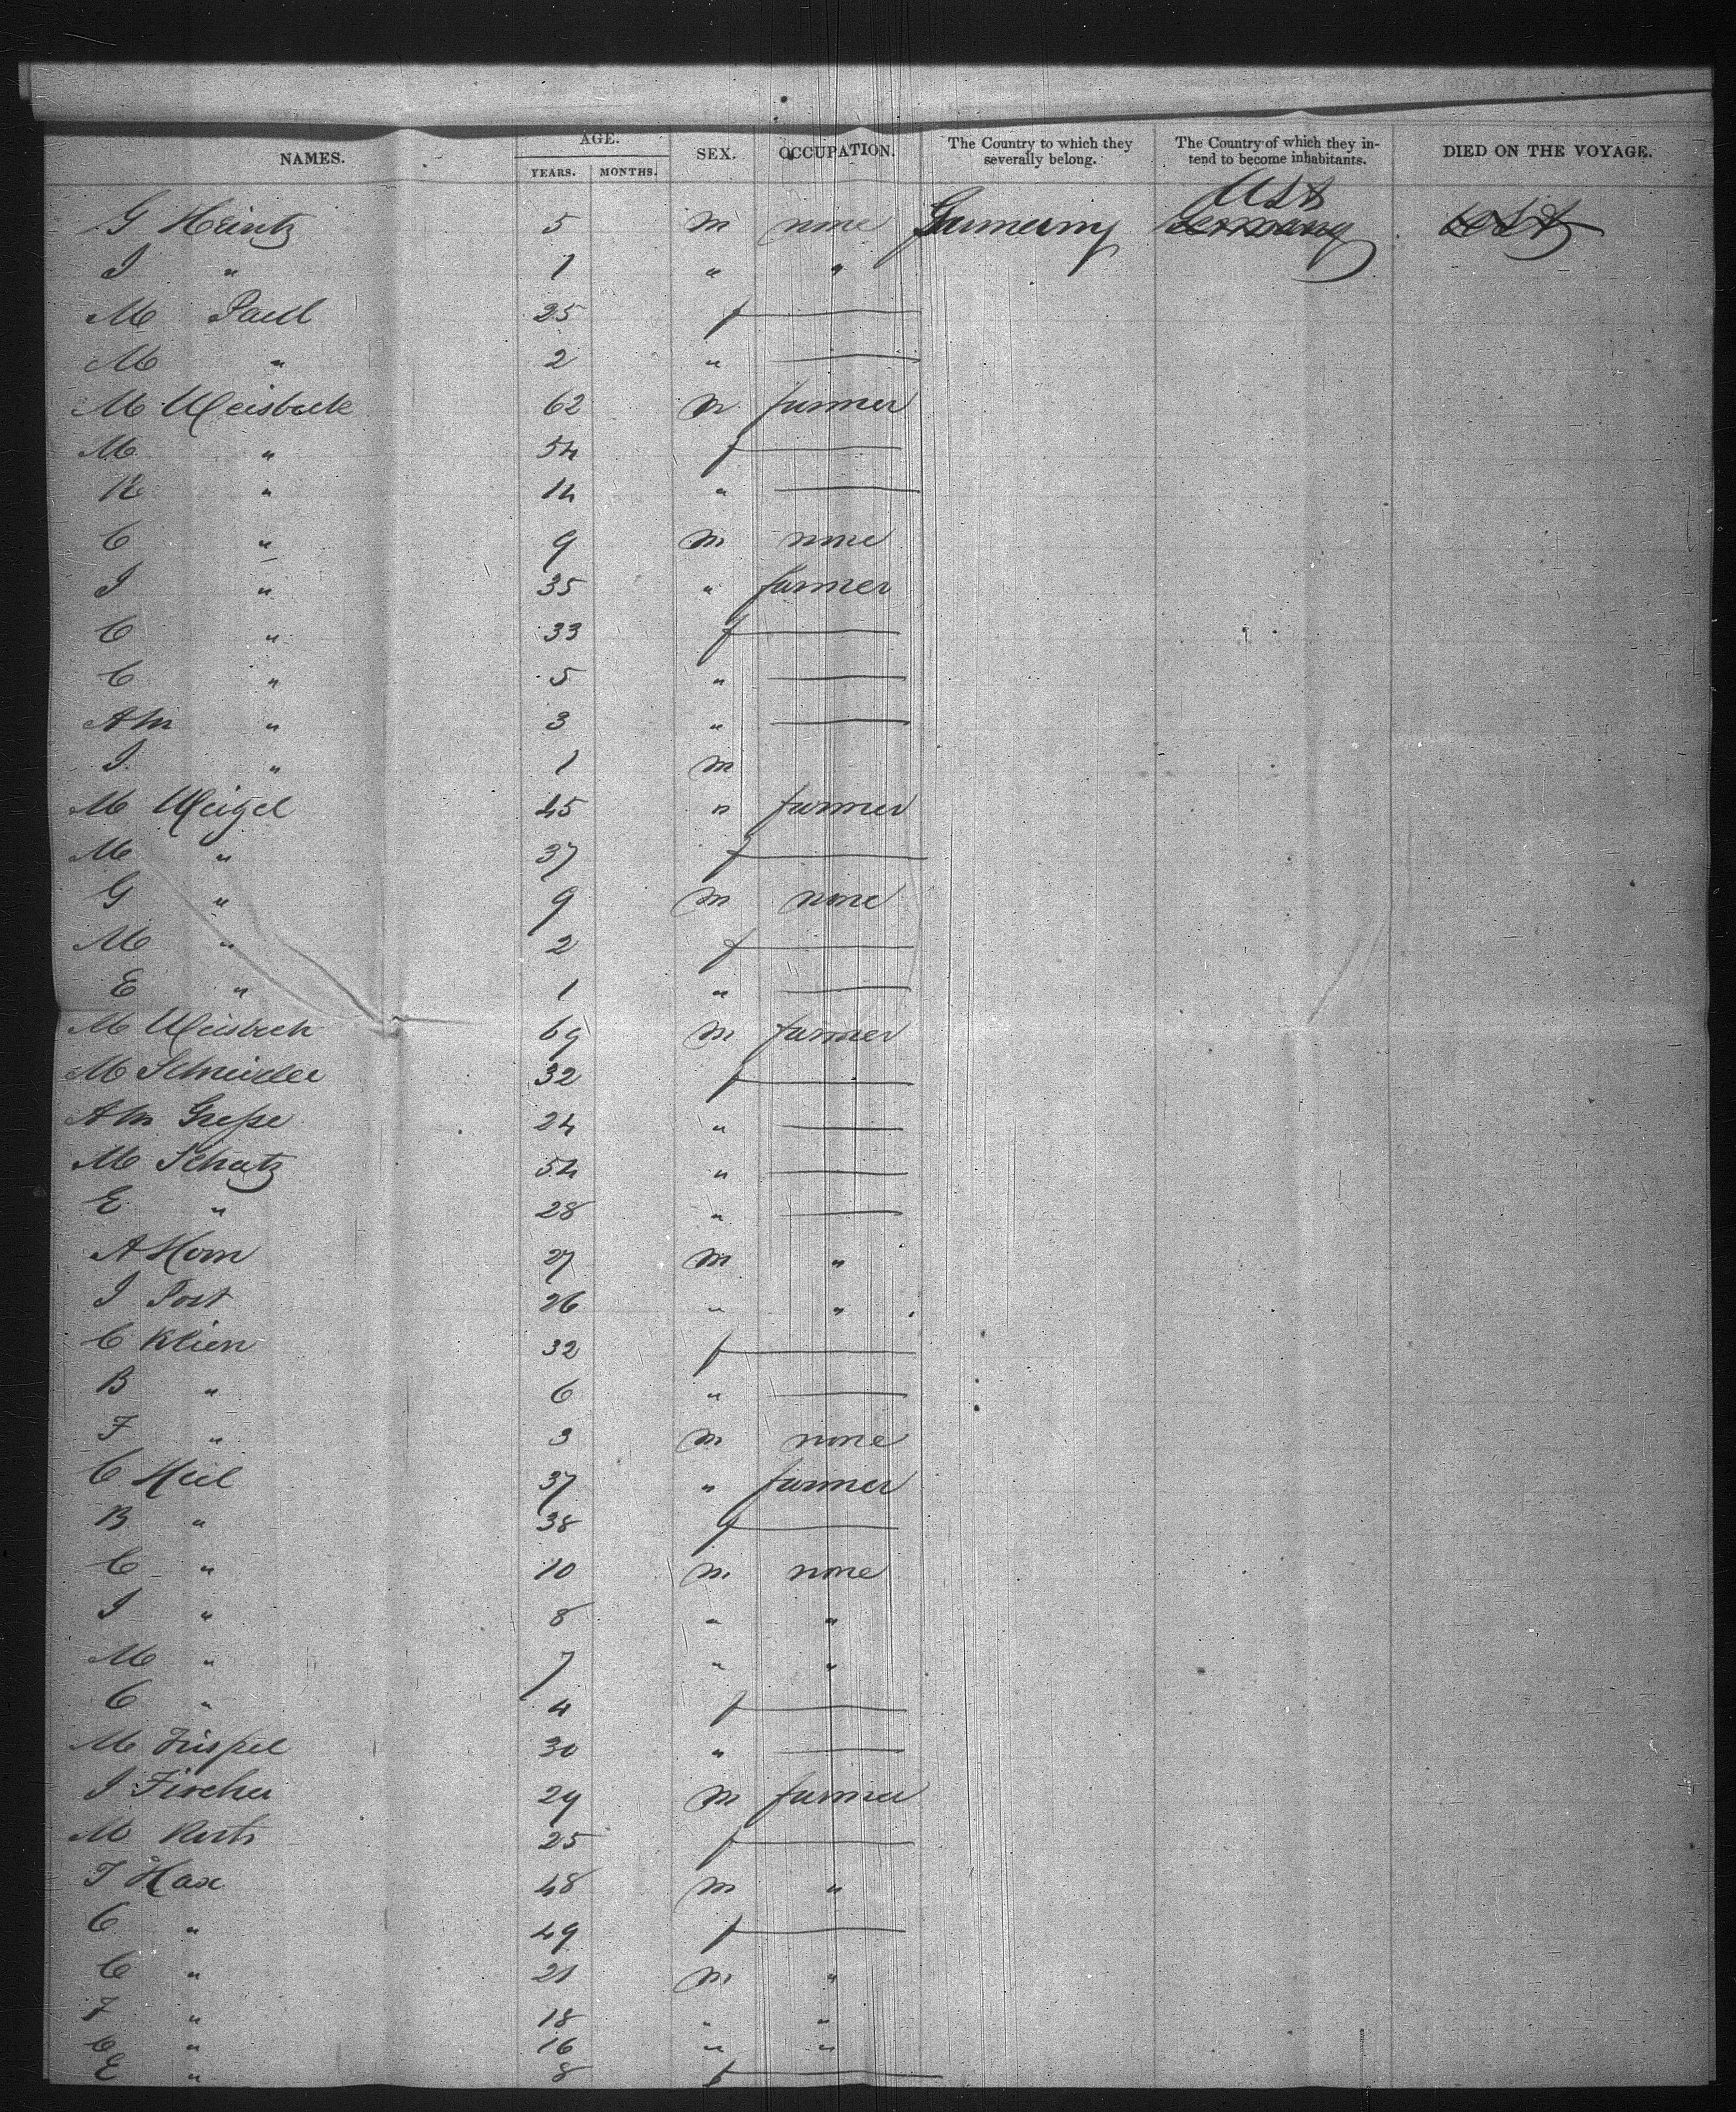 NAMES. AGE. YEARS. MONTHS. SEX. OCCUPATION. The Country to which they severally belong. The Country of which they intend to become inhabitants. DIED ON THE VOYAGE.
USA
G Heintz 5 m none Germany Germany USA
J " 1 " "
M Paul 25 f
M " 2 "
M Weisbeck 62 m farmer
M " 54 f
K " 14 "
C " 9 m none
J " 35 " farmer
C " 33 f
C " 5 "
AM " 3 "
J " 1 m
M Weigel 45 " farmer
M " 37 f
G " 9 m none
M " 2 f
E " 1 "
M Weisbeck 69 m farmer
M Schneider 32 f
AM 24 "
M Schatz 54 "
E " 28 "
A Horn 27 m "
J Post 26 " "
C Klien 32 f
B " 6 "
F " 3 m none
C Heil 37 " farmer
B " 38 f
C " 10 m none
J " 8 " "
M " 7 " "
C " 4 f
M 30 "
J Fischer 29 m farmer
M 25 f
J Hax 48 m "
C " 49 f
C " 21 m "
F " 18 " "
C " 16 " "
E " 8 f